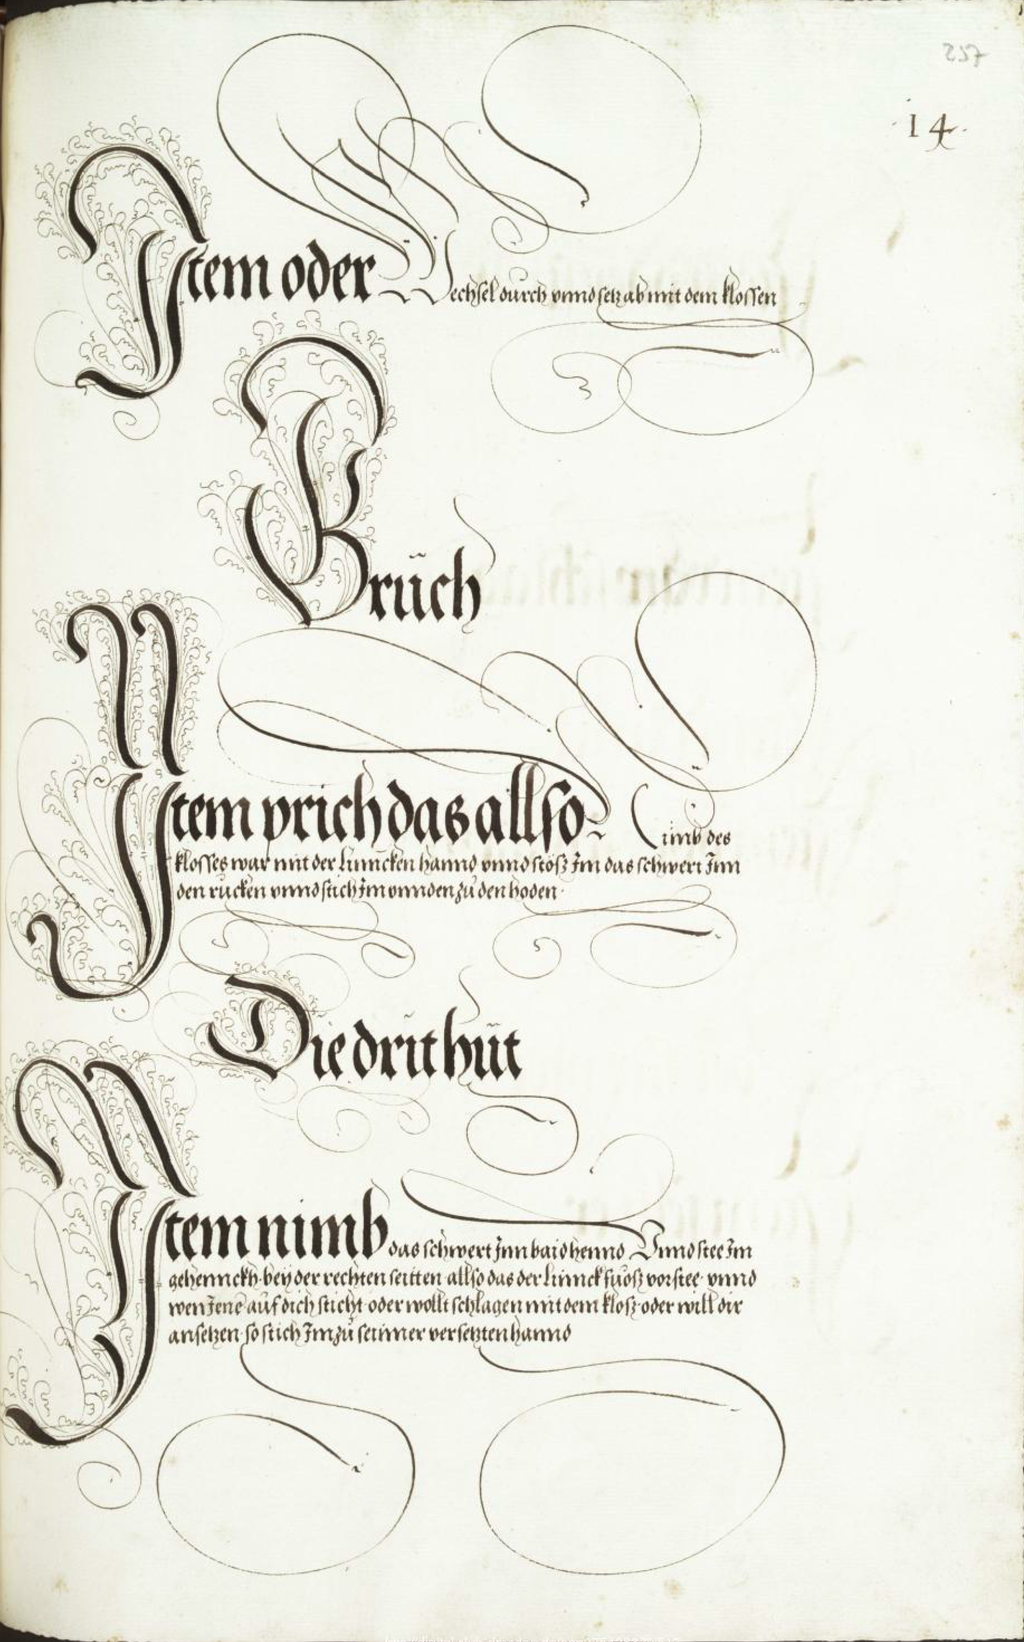 257
·14·
Item oder Wechsel durch vnnd setz ab mit dem klossen
Brüch
Item prich das allso Nimb des
klosses war mit der linncken hannd vnnd stös Im das schwert Inn
den rucken vnnd stich Im vnnden zu den hoden
Die drit hüt
Item nimb das schwert Inn baid hennd Vnnd stee Im
gehennckh bey der rechten seitten allso das der linnck fuos vorstee vnnd
wen Jene auf dich sticht oder wollt schlagen mit dem klos oder will dir
ansetzen so stich Im zu seinner versetzten hannd